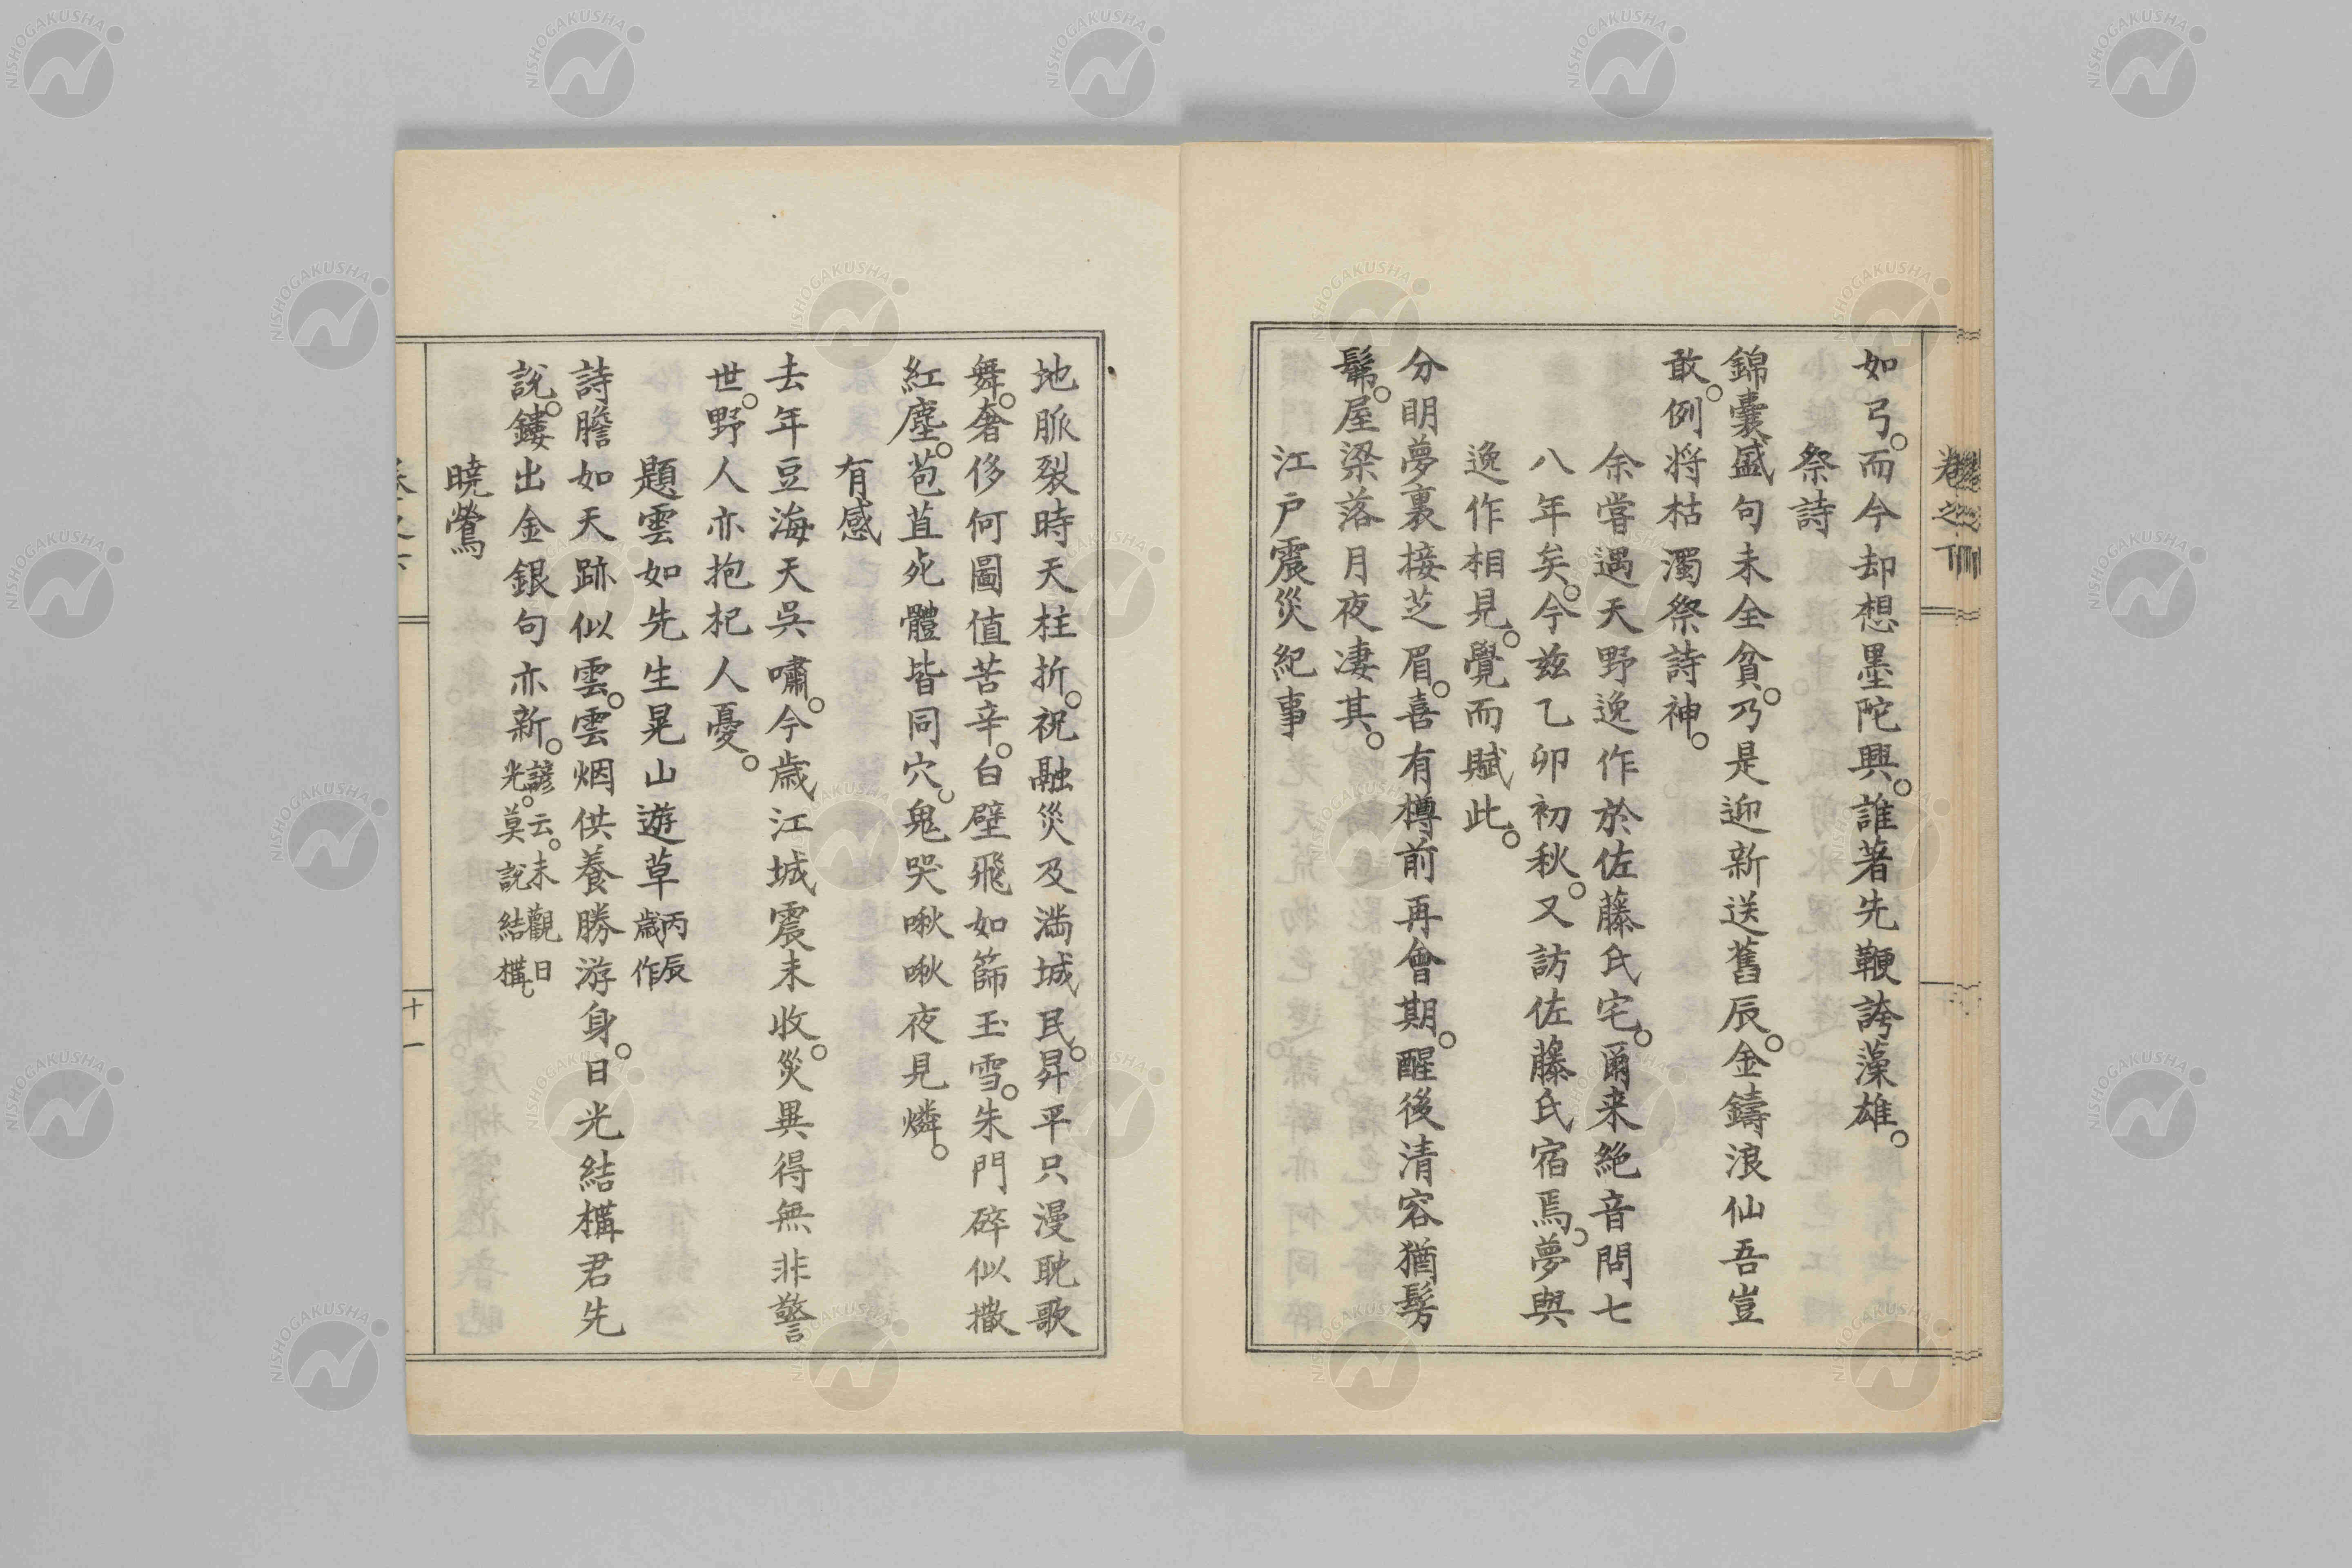 如弓。而今却想墨陀興。誰著先鞭誇藻雄。
祭詩
錦囊盛句未全貧。乃是迎新送舊辰。金鑄浪仙吾豈
敢。例将枯濁祭詩神。
余嘗遇天野逸作於佐藤氏宅。爾来絶音問七
八年矣。今玆乙卯初秋。又訪佐藤氏宿焉。夢與
逸作相見。覺而賦此。
分明夢裏接芝眉。喜有樽前再會期。醒後清容猶髣
髴。屋梁落月夜凄其。
江戸震災紀事
地脈裂時天柱折。祝融災及満城民。昇平只漫耽歌
舞。奢侈何圖値苦辛。白壁飛如篩玉雪。朱門碎似撒
紅塵。苞苴死體皆同穴。鬼哭啾啾夜見燐。
有感
去年豆海天呉嘯。今歳江城震未收。災異得無非警
世。野人亦抱杞人憂。
題雲如先生晃山遊草 丙辰歳作
詩膽如天跡似雲。雲烟供養勝游身。日光結構君先
說。鏤出金銀句亦新。諺云。未觀日光。莫說結構。
暁鶯
十一
卷之下
NISHOGAKUSHA